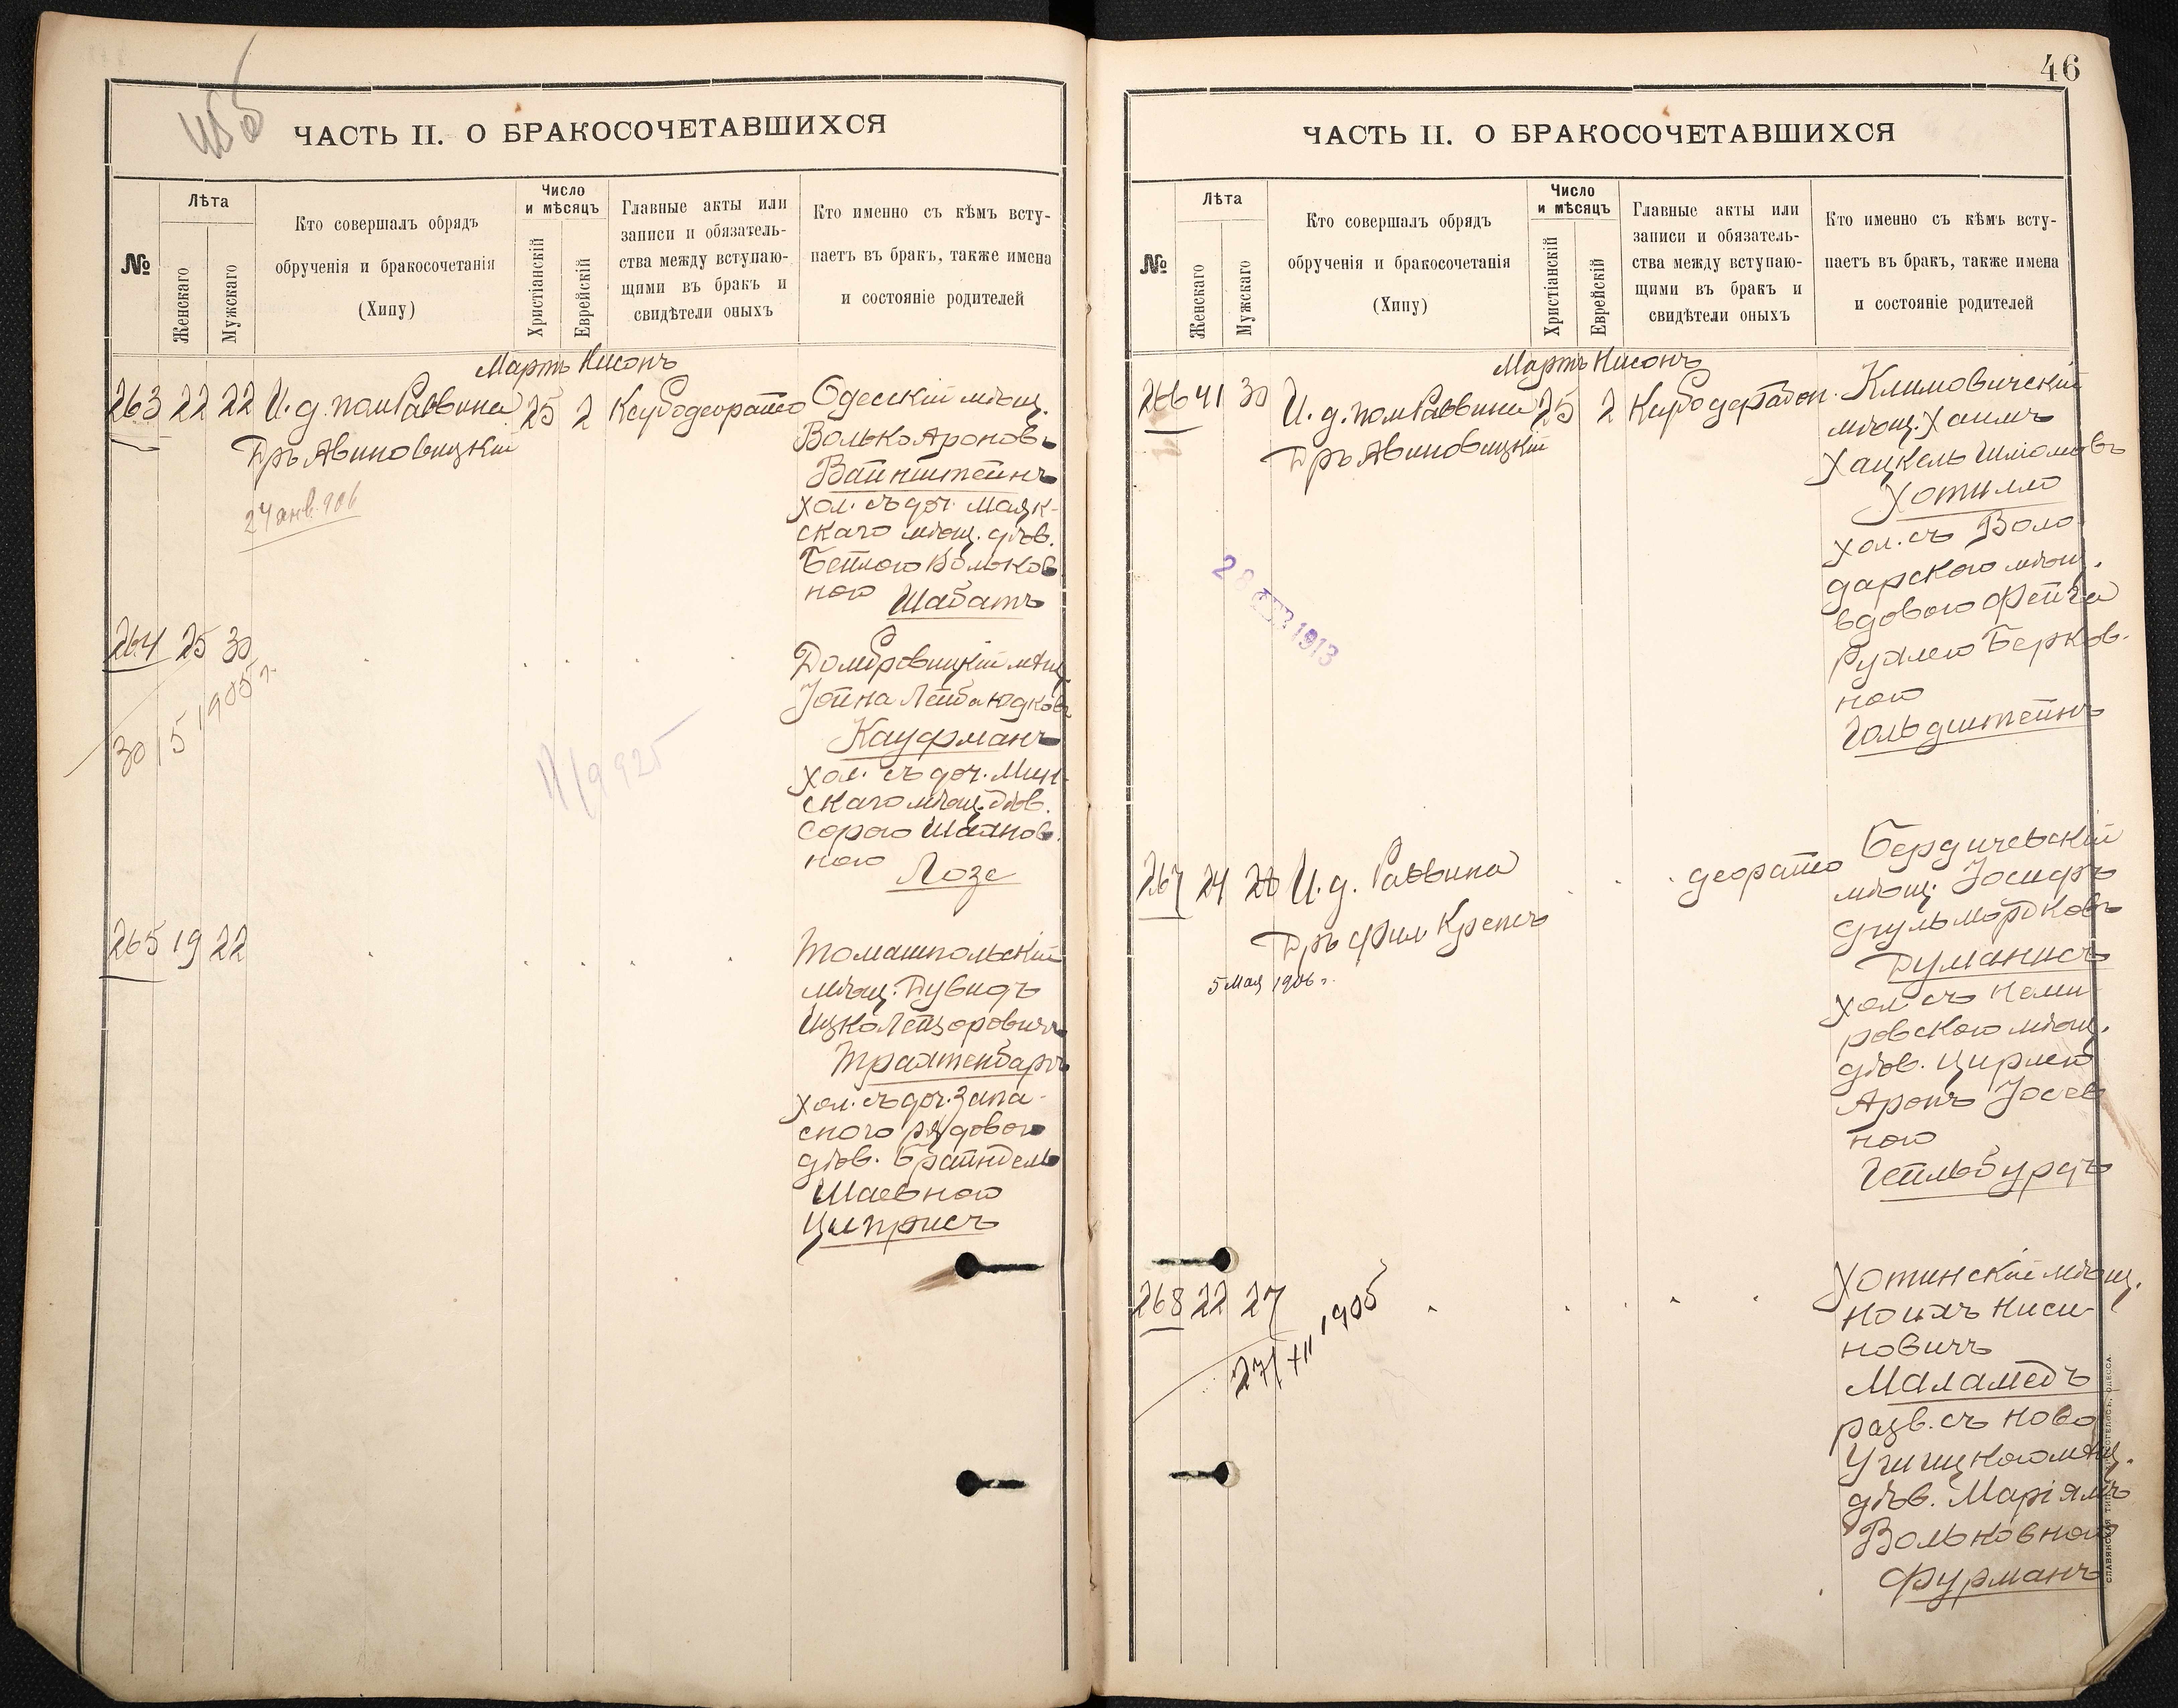 ЧАСТЬ II. О БРАКОСОЧЕТАВШИХСЯ
№
Лѣта
Женскаго
Мужскаго
Кто совершалъ обрядъ
обрученія и бракосочетанія
(Хипу)
Число
и мѣсяцъ
Христіанскій
Еврейскій
Главные акты или
записи и обязатель-
ства между вступаю-
щими въ бракъ и
свидѣтели оныхъ
Кто именно съ кѣмъ всту-
паетъ въ бракъ, также имена
и состояніе родителей
Мартъ Нисонъ
263 22 22 И. д. пом Раввина 25 2 Ксубодеорайсо
Дръ Авиновицкій
24 янв. 906
Одесскій мѣщ.
Волько Ароновъ
Вайнштейнъ
хол. съ доч. Маяк-
скаго мѣщ. дѣв.
Бейлою Вольков
ною Шабатъ
264 25 30
30/5 1905 г.
11/9 925
Домбровицкій мѣщ
Іойна Лейба Юдковъ
Кауфманъ
хол. съ доч. Мин-
скаго мѣщ. дѣв.
Сорою Шаянов.
ною Лозе
265 19 22
Томашпольскій
мѣщ. Дувидъ
Ицко Лейзоровичъ
Трахтенбаргъ
хол. съ доч. Запа-
сного рядового
дѣв. Брайндель
Шаевною
Циприсъ
46
ЧАСТЬ II. О БРАКОСОЧЕТАВШИХСЯ
№
Лѣта
Женскаго
Мужскаго
Кто совершалъ обрядъ
обрученія и бракосочетанія
(Хипу)
Число
и мѣсяцъ
Христіанскій
Еврейскій
Главные акты или
записи и обязатель-
ства между вступаю-
щими въ бракъ и
свидѣтели оныхъ
Кто именно съ кѣмъ всту-
паетъ въ бракъ, также имена
и состояніе родителей
Мартъ Нисонъ
266 41 30 И. д. пом Раввина 25 2
Дръ Авиновицкій
1913
Климовичскій
мѣщ. Хаимъ
Хацкель Шліомовъ
Хотилло
хол. съ Воло
дарскою мѣщ.
вдовою Фейга
Рухлею Берков.
ною
Гольдштейнъ
267 24 28 И. д. Раввина деорайсо
Дръ Фил Крепсъ
5 Мая 1906 г.
Бердичевскій
мѣщ. Іосифъ
Сруль Мордковъ
Думанисъ
хол съ Неми
ровскою мѣщ.
дѣв. Цирлею
Аронъ Іосев
ною
Гейльбурдъ
268 22 27
27/XII 1905
Хотинскій мѣщ.
Ноихъ Ниси-
новичъ
Маламедъ
разв. съ Ново
Ушицкою мѣщ.
дѣв. Маріямъ
Вольковною
Фурманъ